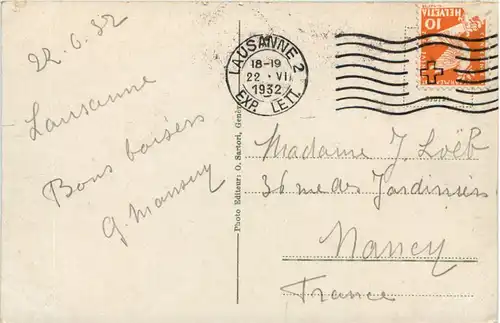 22.6.32
Lausanne
Bons baisers
G. Mansuy
Photo Editeur: O. Sartori, Genève
LAUSANNE 2
18-19
22 · VI
1932
EXP. LETT.
HELVETIA
10
Madame J Loëb
36 rue des Jardiniers
Nancy
France